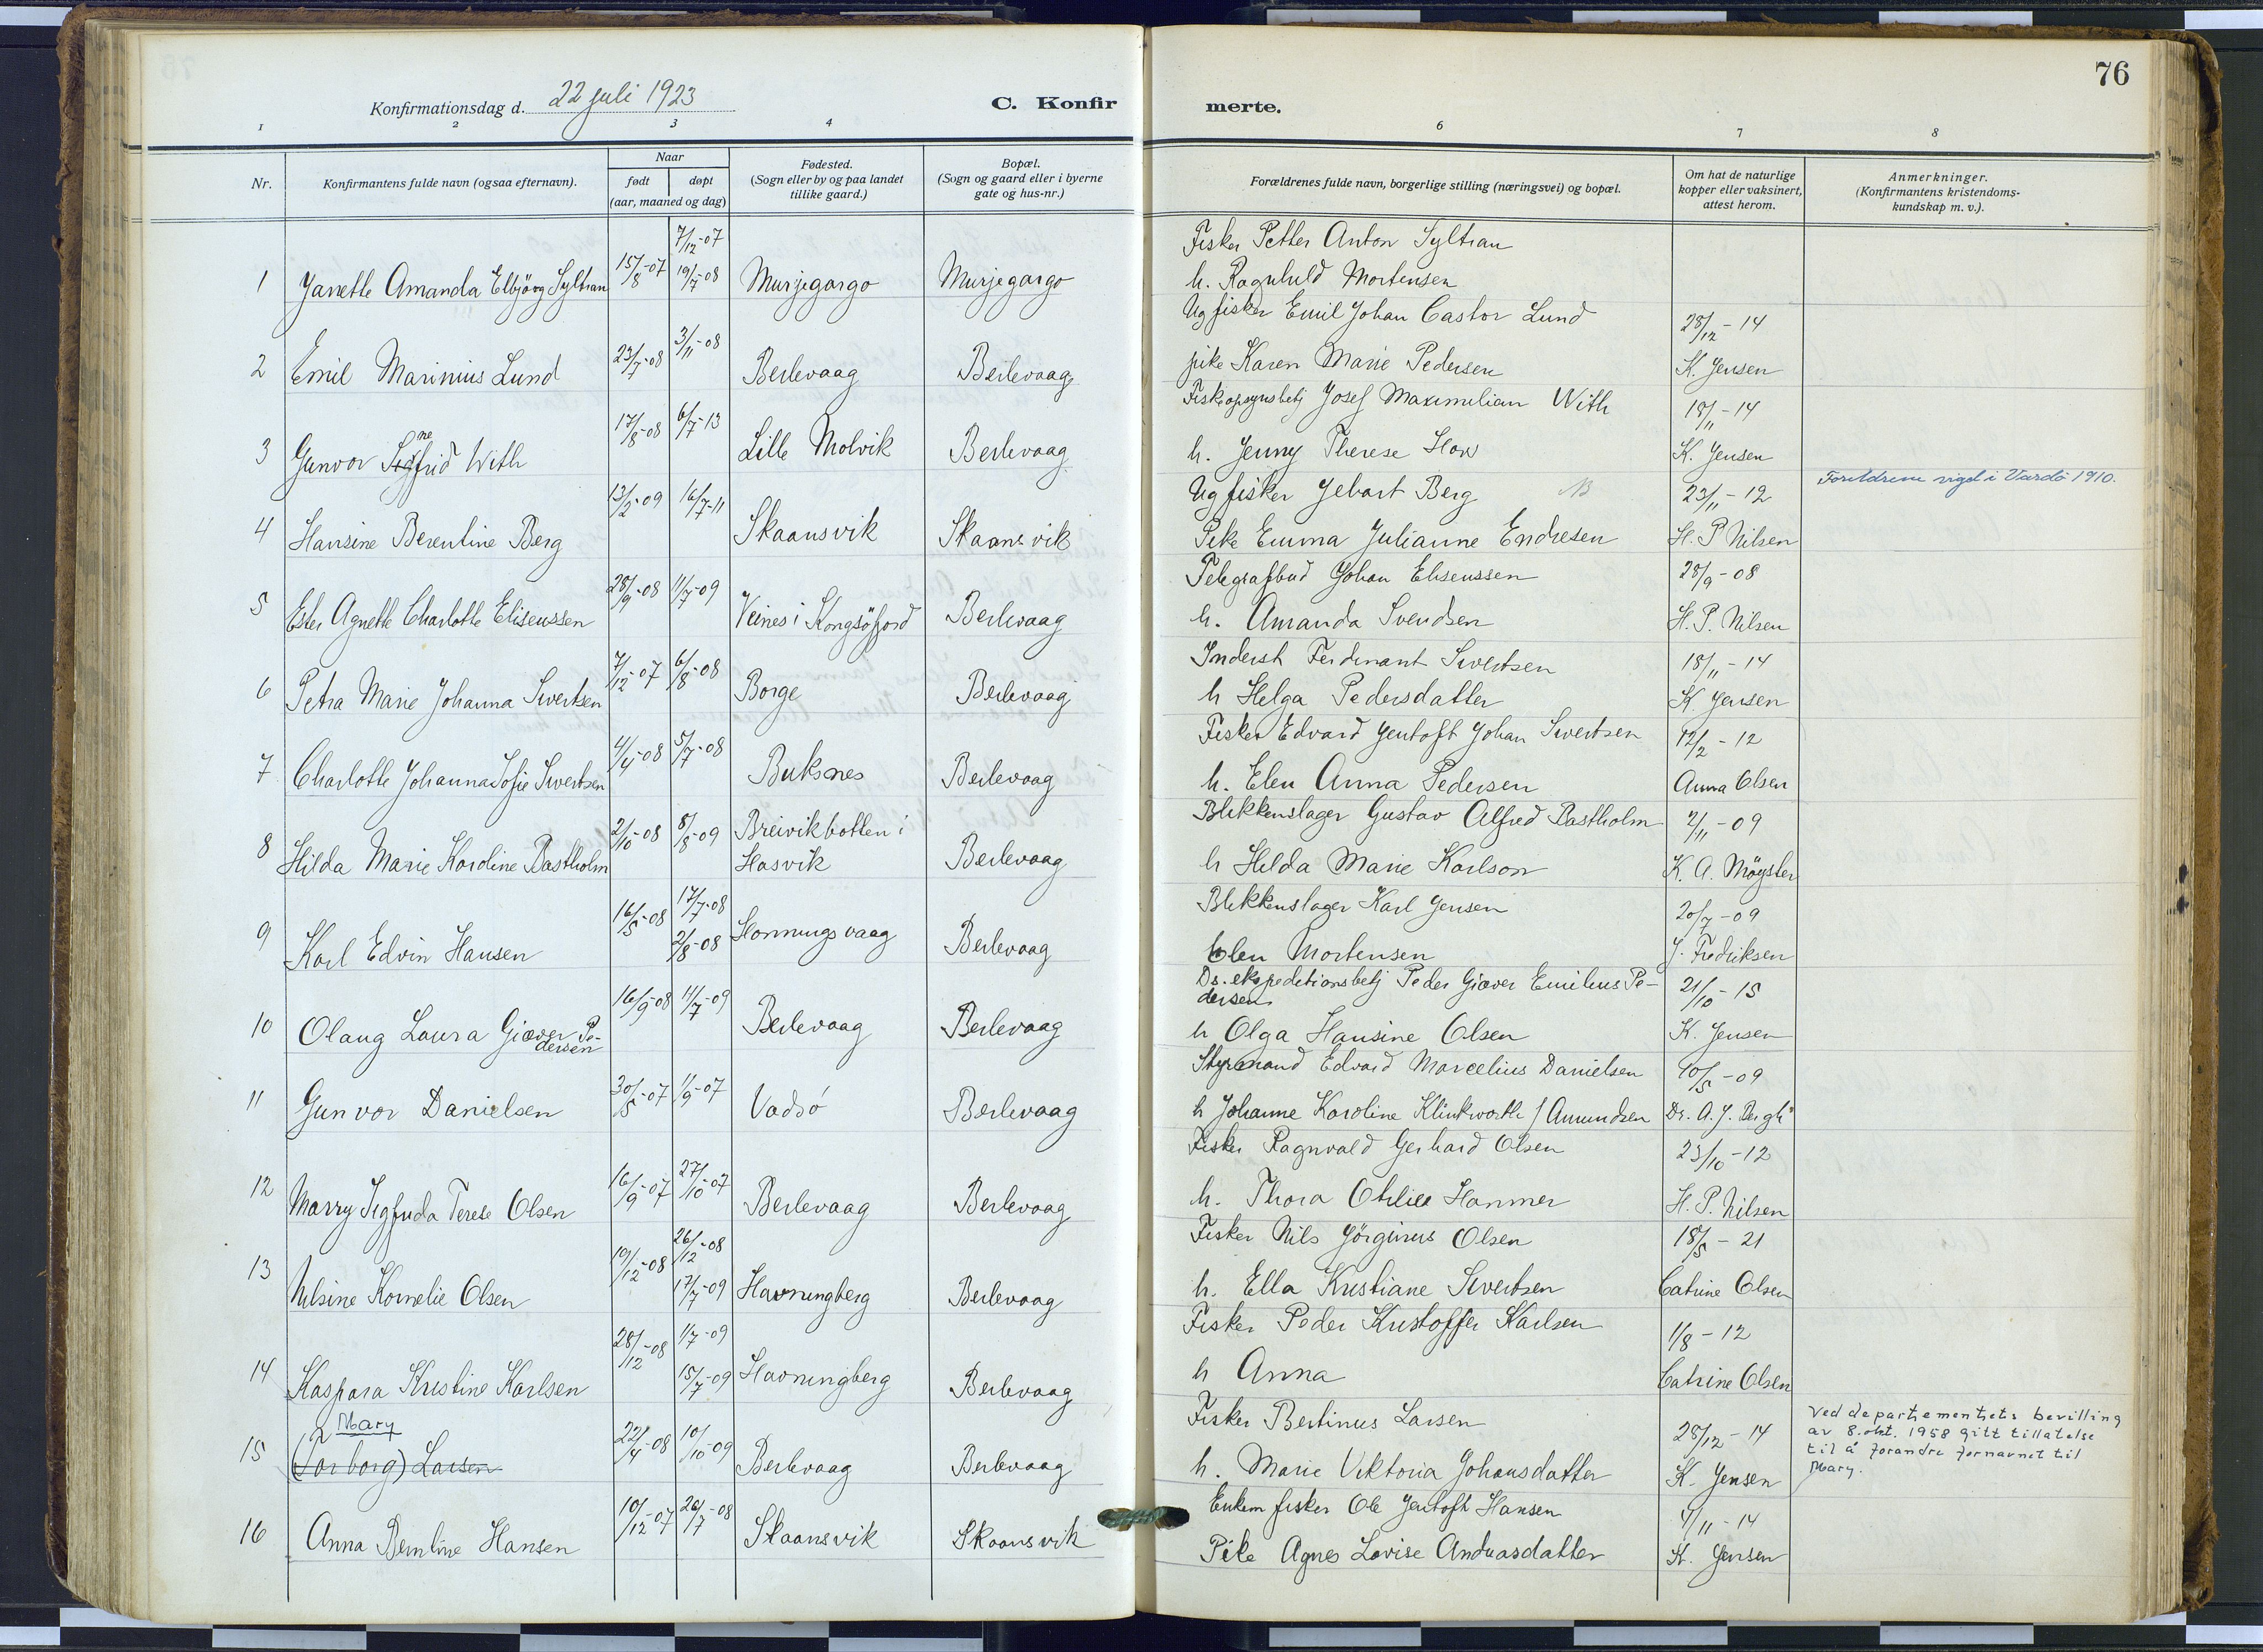 76
Konfirmationsdag d. 22 juli 1923
C. Konfir
merte.
1 2 3 4 6 7 8
Nr.
Konfirmantens fulde navn (ogsaa efternavn).
Naar
født døpt
(aar, maaned og dag)
Fødested.
(Sogn eller by og paa landet
tillike gaard.)
Bopæl.
(Sogn og gaard eller i byerne
gate og hus-nr.)
Forældrenes fulde navn, borgerlige stilling (næringsvei) og bopæl.
Om hat de naturlige
kopper eller vaksinert,
attest herom.
Anmerkninger.
(Konfirmantens kristendoms-
kundskap m. v.).
7/12-07
1 Janette Amanda Elbjörg Syltran 15/8-07 19/7-08 Murjegargo Murjegargo
Fisker Petter Anton Syltran
h. Ragnhild Mortensen
2 Emil Marinius Lund 23/7-08 3/11-08 Berlevaag Berlevaag
Ug fisker Emil Johan Castor Lund 28/12-14
pike Karen Marie Pedersen K. Jensen
3 Gunvor Signe With 17/8-08 6/7-13 Lille Molvik Berlevaag
Fiskeopsynsbetj Josef Maximilian With 18/11-14
h. Jenny Therese How K. Jensen
4 Hansine Berentine Berg 13/2-09 16/7-11 Skaansvik Skaansvik
Ug fisker Gebart Berg 23/11-12 Foreldrene viget i Vardö 1910.
Pike Emma Julianne Endresen H. P Nilsen
5 Ester Agnette Charlotte Eliseussen 28/9-08 11/7-09 Veines i Kongsöfjord Berlevaag
Telegrafbud Johan Eliseussen 28/9-08
h. Amanda Svendsen H. P. Nilsen
6 Petra Marie Johanna Sivertsen 7/12-07 6/8-08 Borge Berlevaag
Inderst Ferdinant Sivertsen 18/11-14
h Helga Pedersdatter K. Jensen
7 Charlotte Johanna Sofie Sivertsen 4/4-08 5/7-08 Buksnes Berlevaag
Fisker Edvard Jentoft Johan Sivertsen 12/2-12
h. Elen Anna Pedersen Anna Olsen
8 Hilda Marie Karoline Bastholm 2/10-08 8/8-09 Breivikbotten i Hasvik Berlevaag
Blikkenslager Gustav Alfred Bastholm 2/11-09
h Hilda Marie Karlson K. A. Möyster
9 Karl Edvin Hansen 16/5-08 17/7-08 2/8-08 Honningsvaag Berlevaag
Blikkenslager Karl Jensen 20/7-09
Elen Mortensen J. Fredriksen
10 Olaug Laura Giæver Pedersen 16/9-08 11/7-09 Berlevaag Berlevaag
Ds. ekspeditionsbetj Peder Giæver Emilius Pe-
dersen 21/10-15
h Olga Hansine Olsen K. Jensen
11 Gunvor Danielsen 30/5-07 1/9-07 Vadsö Berlevaag
Styrmand Edvard Marcelius Danielsen 10/5-09
h Johanne Karoline Klinkworth f Amundsen Dr. A. J. Bergh
12 Marry Sigfrida Terese Olsen 16/9-07 27/10-07 Berlevaag Berlevaag
Fisker Ragnvald Gerhard Olsen 23/10-12
h. Thora Otilie Hammer H. P. Nilsen
13 Nilsine Kornelie Olsen 19/12-08 26/12-08 17/7-09 Havningberg Berlevaag
Fisker Nils Jörginus Olsen 18/5-21
h. Ella Kristiane Sivertsen Catrine Olsen
14 Kaspara Kristine Karlsen 28/12-08 1/7-09 15/7-09 Havningberg Berlevaag
Fisker Peder Kristoffer Karlsen 1/8-12
h Anna Catrine Olsen
Mary
15 (Torborg) Larsen 22/4-08 10/10-09 Berlevaag Berlevaag
Fisker Bertinus Larsen 28/12-14
h. Marie Viktoria Johansdatter K. Jensen
Ved departementets bevilling
av 8. okt. 1958 gitt tillatelse
til å forandre fornavnet til
Mary.
16 Anna Berntine Hansen 10/12-07 26/7-08 Skaansvik Skaansvik
Enkem fisker Ole Jentoft Hansen 4/11-14
Pike Agnes Lovise Andreasdatter K. Jensen